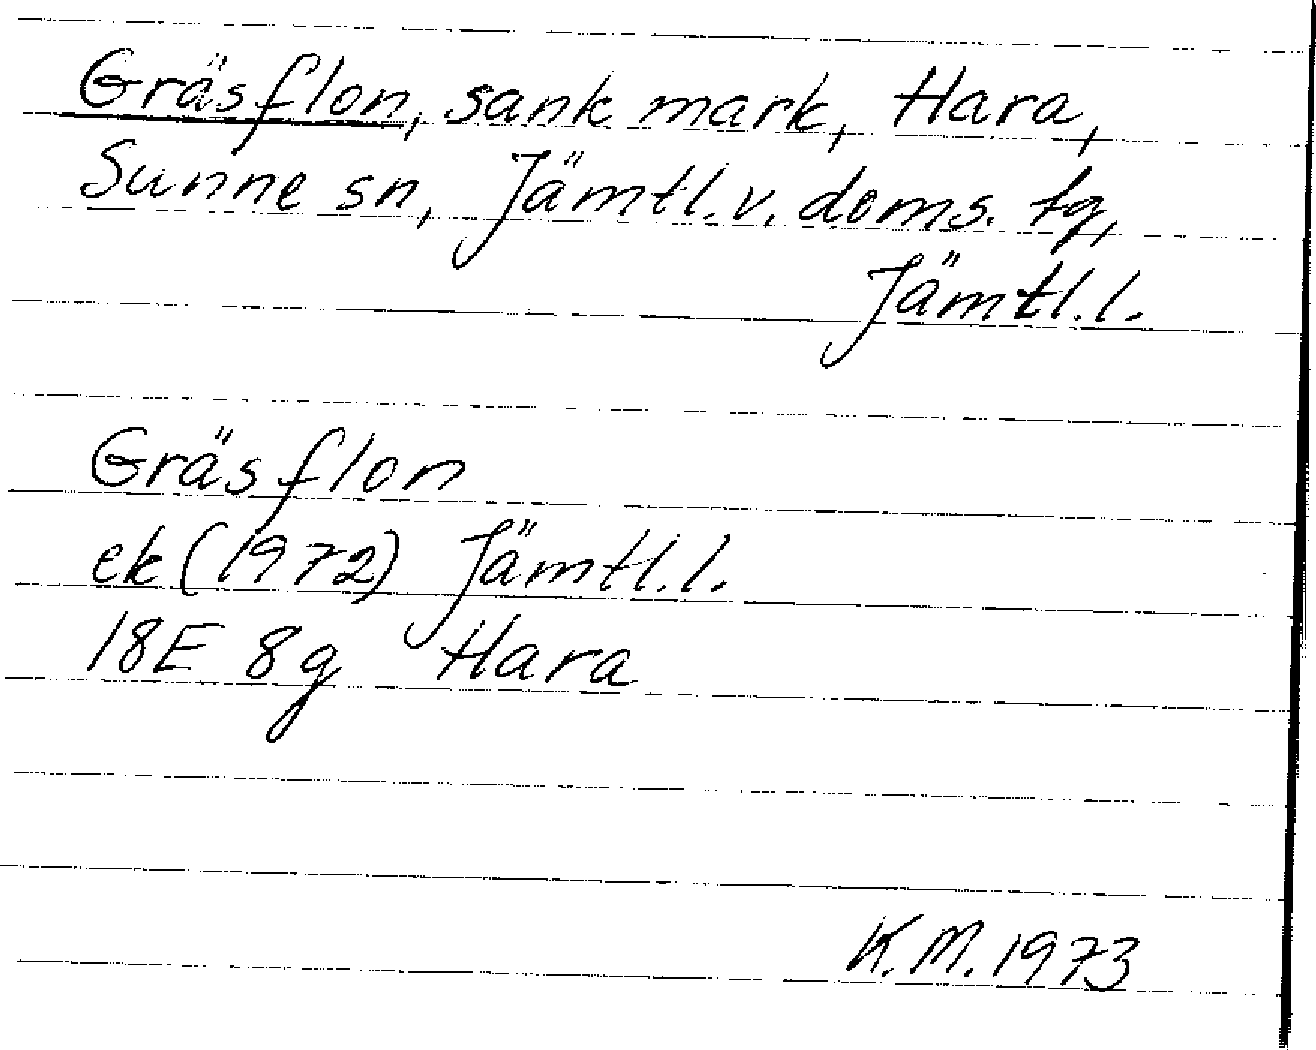 Gräsflon, sank mark, Hara,
Sunne sn, Jämtl. v. doms. tg,
Jämtl. l.
Gräsflon
ek (1972) Jämtl. l.
18E 8g Hara
K.M. 1973